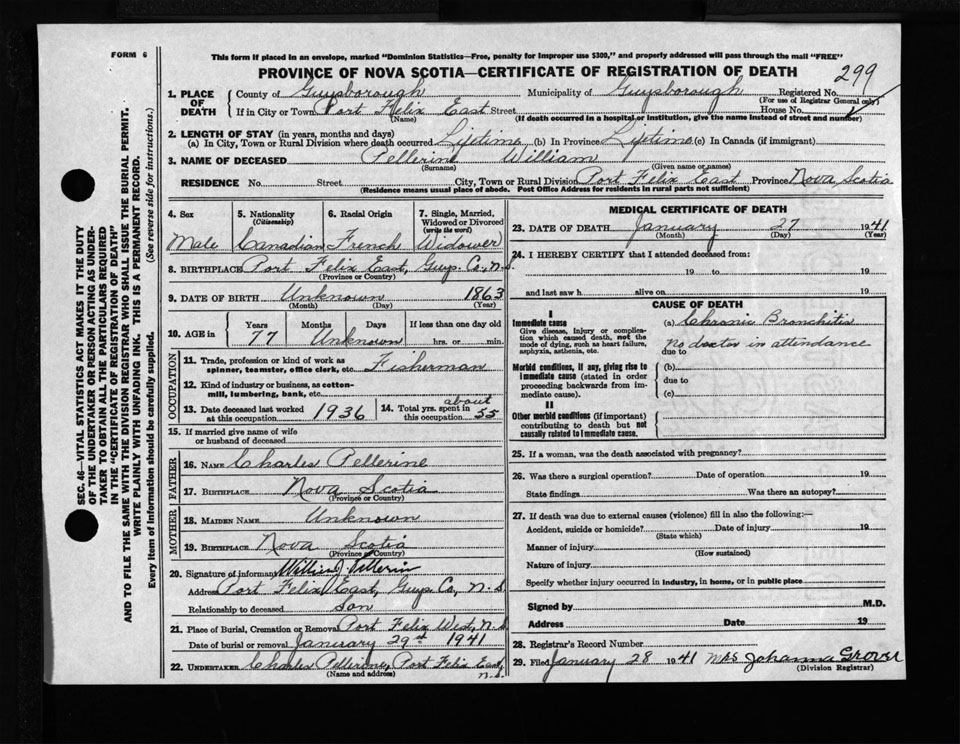 FORM 6
This form if placed in an envelope, marked "Dominion Statistics—Free, penalty for improper use $300," and properly addressed will pass through the mail "FREE"
PROVINCE OF NOVA SCOTIA—CERTIFICATE OF REGISTRATION OF DEATH
299
1. PLACE OF DEATH
County of Guysborough Municipality of Guysborough Registered No.
(For use of Registrar General only)
If in City or Town Port Felix East Street House No.
(Name) (If death occurred in a hospital or institution, give the name instead of street and number)
2. LENGTH OF STAY (in years, months and days)
(a) In City, Town or Rural Division where death occurred Lifetime (b) In Province Lifetime (c) In Canada (if immigrant)
3. NAME OF DECEASED Pellerine William
(Surname) (Given name or names)
RESIDENCE No. Street City, Town or Rural Division Port Felix East Province Nova Scotia
(Residence means usual place of abode. Post Office Address for residents in rural parts not sufficient)
4. Sex 5. Nationality (Citizenship) 6. Racial Origin 7. Single, Married, Widowed or Divorced (write the word)
Male Canadian French Widower
8. BIRTHPLACE Port Felix East, Guys. Co., N.S.
(Province or Country)
9. DATE OF BIRTH Unknown 1863
(Month) (Day) (Year)
10. AGE in Years Months Days If less than one day old
77 Unknown hrs. or min.
OCCUPATION
11. Trade, profession or kind of work as spinner, teamster, office clerk, etc. Fisherman
12. Kind of industry or business, as cotton-mill, lumbering, bank, etc.
13. Date deceased last worked at this occupation 1936 14. Total yrs. spent in this occupation about 55
15. If married give name of wife or husband of deceased
FATHER
16. NAME Charles Pellerine
17. BIRTHPLACE Nova Scotia
(Province or Country)
MOTHER
18. MAIDEN NAME Unknown
19. BIRTHPLACE Nova Scotia
(Province or Country)
20. Signature of informant William J. Pellerin
Address Port Felix East, Guys. Co, N.S
Relationship to deceased Son
21. Place of Burial, Cremation or Removal Port Felix West, N.S
Date of burial or removal January 29th 1941
22. UNDERTAKER Charles Pellerine, Port Felix East, N.S.
(Name and address)
MEDICAL CERTIFICATE OF DEATH
23. DATE OF DEATH January 27 1941
(Month) (Day) (Year)
24. I HEREBY CERTIFY that I attended deceased from:
19 to 19
and last saw h alive on 19
CAUSE OF DEATH
I
Immediate cause
Give disease, injury or complication which caused death, not the mode of dying, such as heart failure, asphyxia, asthenia, etc.
(a) Chronic Bronchitis
No doctor in attendance
due to
Morbid conditions, if any, giving rise to immediate cause (stated in order proceeding backwards from immediate cause)
(b)
due to
(c)
II
Other morbid conditions (if important) contributing to death but not causally related to immediate cause.
25. If a woman, was the death associated with pregnancy?
26. Was there a surgical operation? Date of operation 19
State findings Was there an autopsy?
27. If death was due to external causes (violence) fill in also the following:—
Accident, suicide or homicide? Date of injury 19
(State which)
Manner of injury
(How sustained)
Nature of injury
Specify whether injury occurred in industry, in home, or in public place
Signed by M.D.
Address Date 19
28. Registrar's Record Number
29. Filed January 28 1941 Mrs Johanna Grover
(Division Registrar)
SEC. 46—VITAL STATISTICS ACT MAKES IT THE DUTY
OF THE UNDERTAKER OR PERSON ACTING AS UNDER-
TAKER TO OBTAIN ALL THE PARTICULARS REQUIRED
IN THE "CERTIFICATE OF REGISTRATION OF DEATH"
AND TO FILE THE SAME WITH THE DIVISION REGISTRAR WHO SHALL ISSUE THE BURIAL PERMIT.
WRITE PLAINLY WITH UNFADING INK. THIS IS A PERMANENT RECORD.
Every item of information should be carefully supplied. (See reverse side for instructions.)